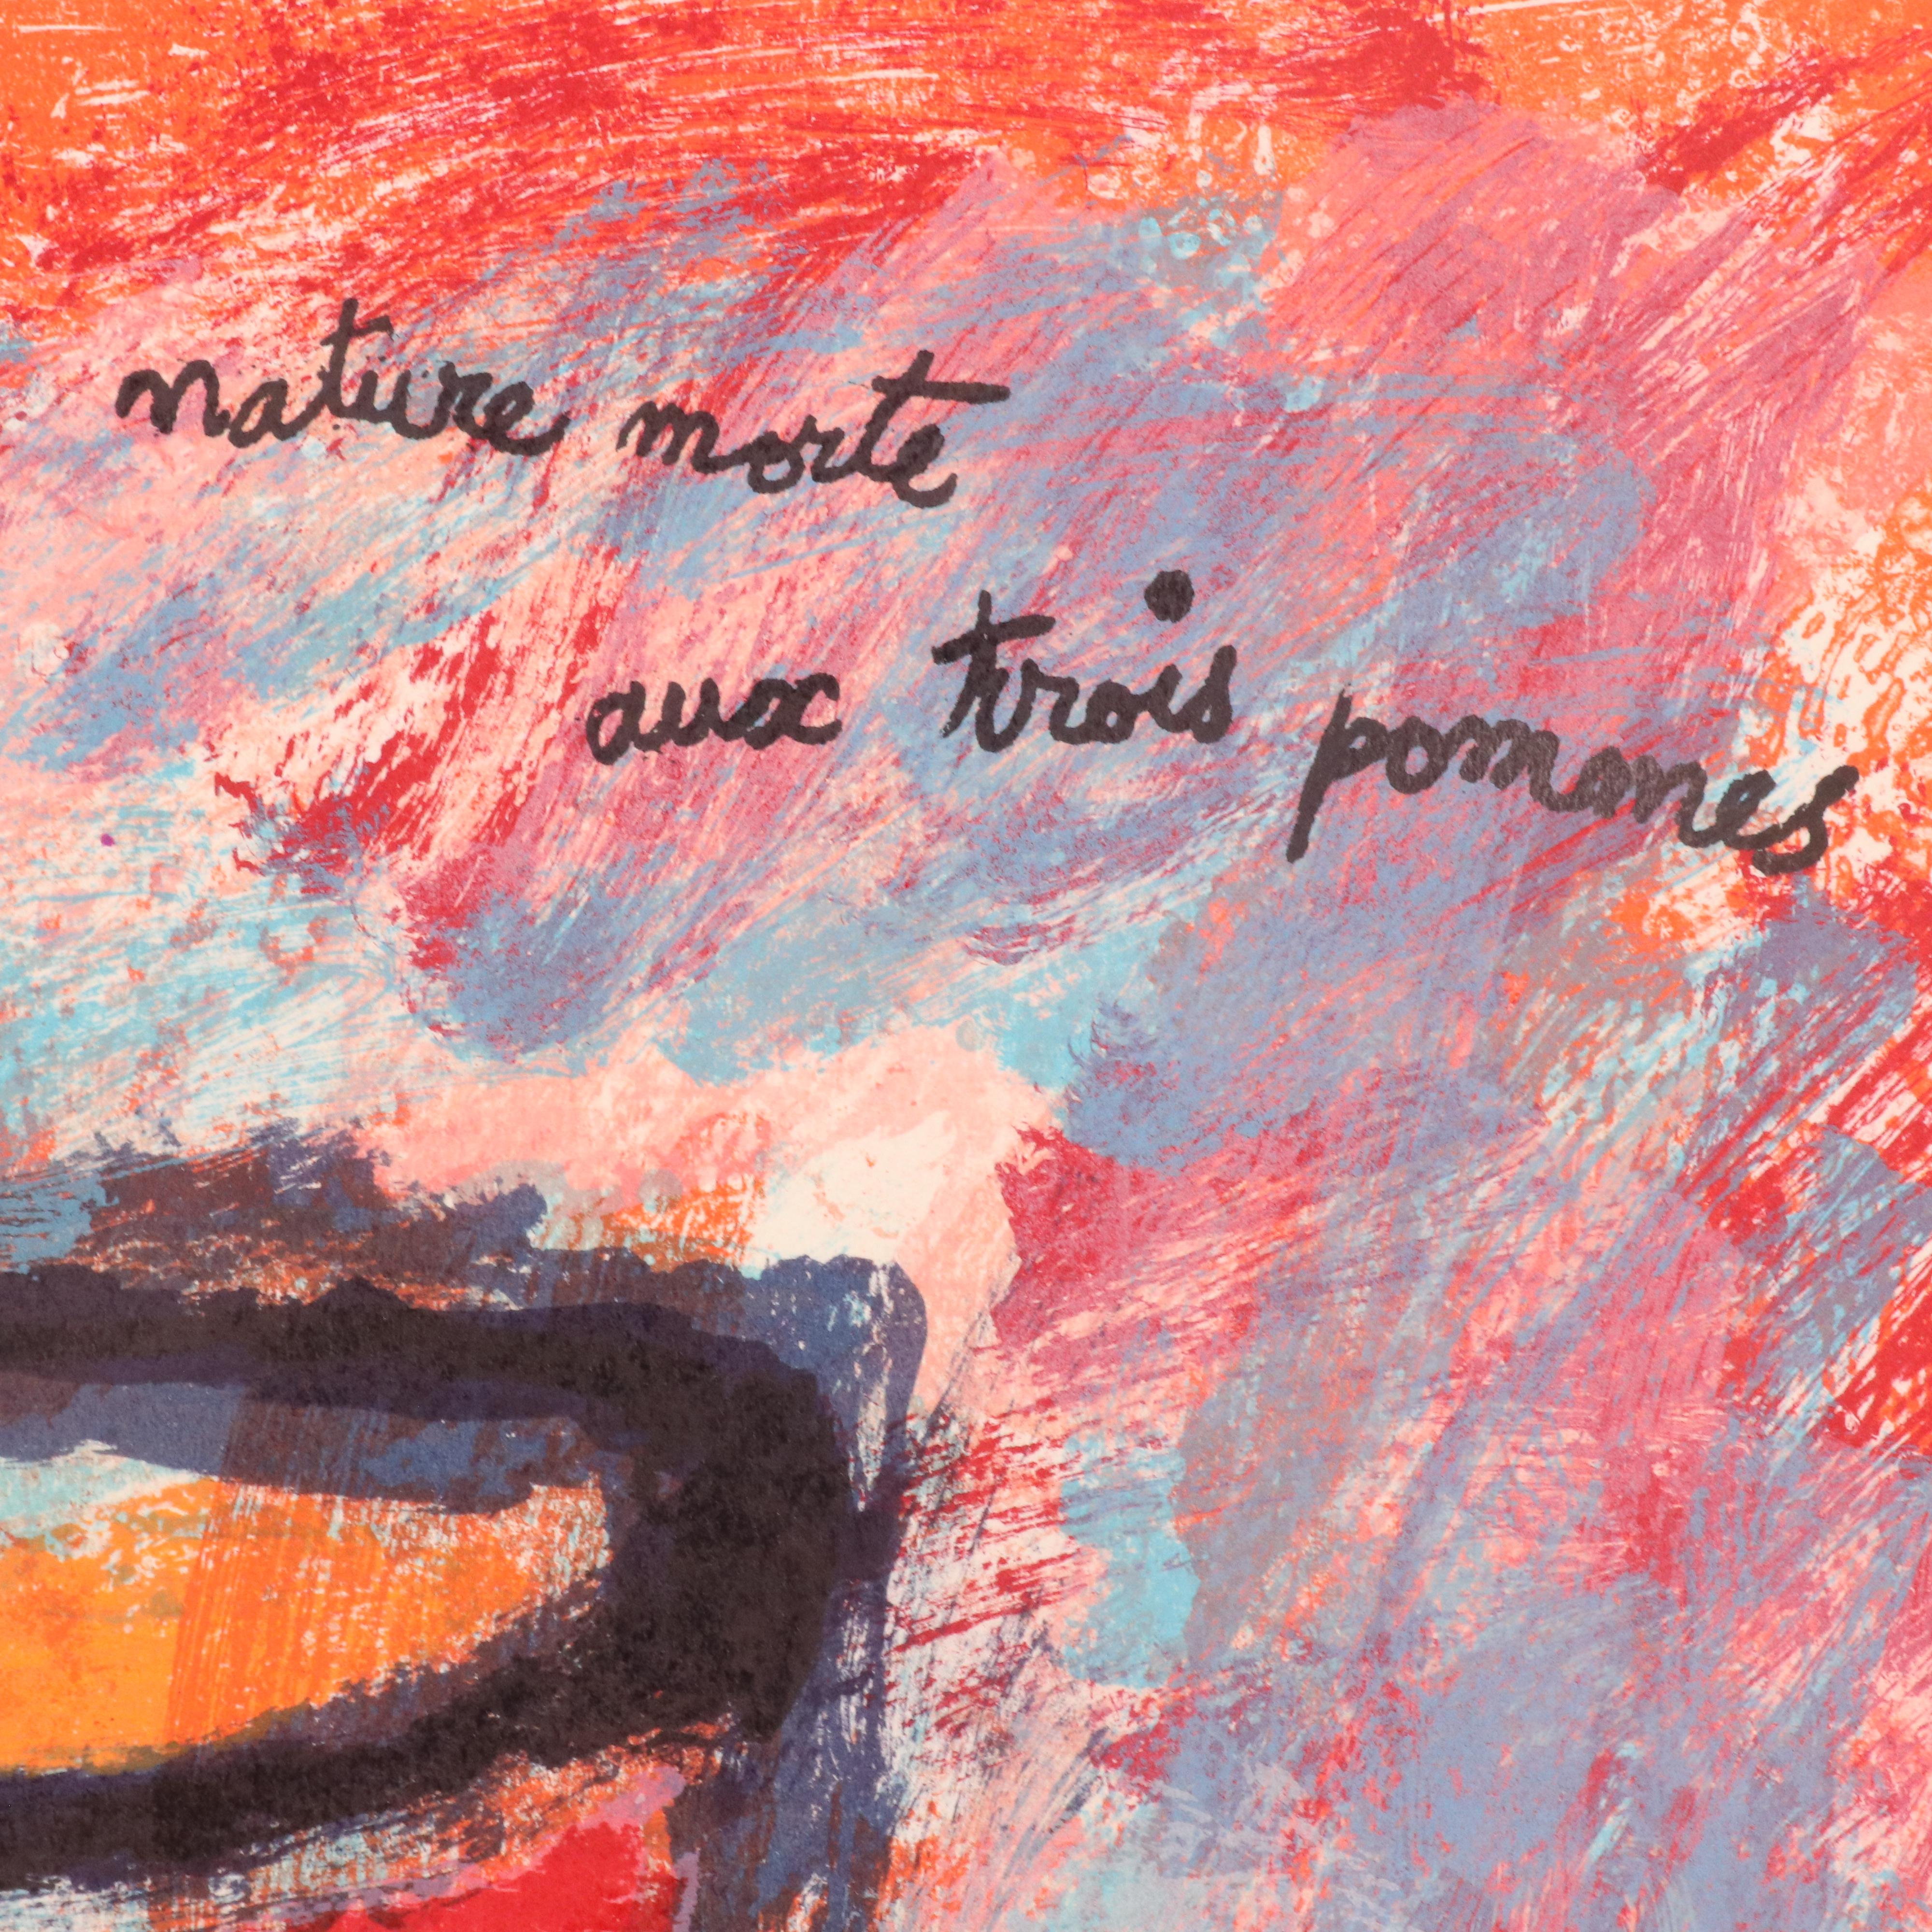 nature morte
aux trois pommes